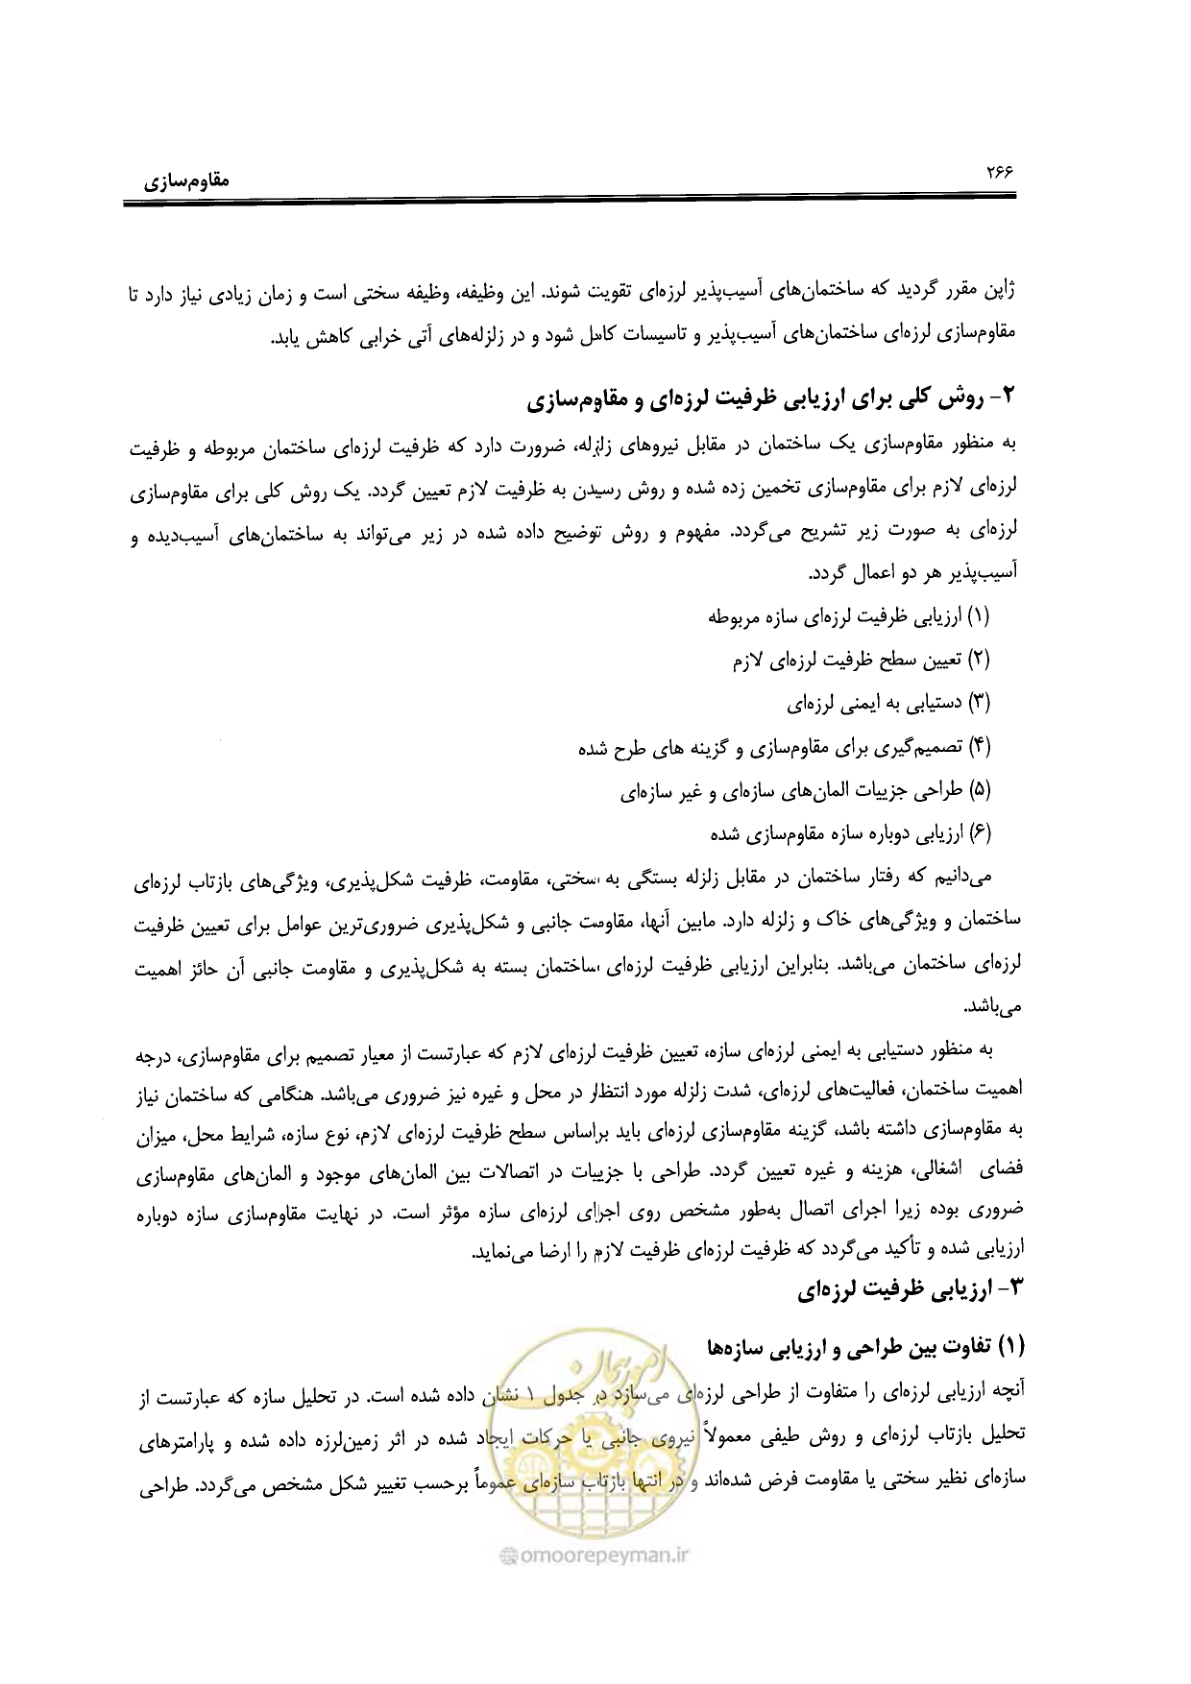 ۲۶۶
مقاوم‌سازی
ژاپن مقرر گردید که ساختمان‌های آسیب‌پذیر لرزه‌ای تقویت شوند. این وظیفه، وظیفه سختی است و زمان زیادی نیاز دارد تا
مقاوم‌سازی لرزه‌ای ساختمان‌های آسیب‌پذیر و تاسیسات کامل شود و در زلزله‌های آتی خرابی کاهش یابد.
۲- روش کلی برای ارزیابی ظرفیت لرزه‌ای و مقاوم‌سازی
به منظور مقاوم‌سازی یک ساختمان در مقابل نیروهای زلزله، ضرورت دارد که ظرفیت لرزه‌ای ساختمان مربوطه و ظرفیت
لرزه‌ای لازم برای مقاوم‌سازی تخمین زده شده و روش رسیدن به ظرفیت لازم تعیین گردد. یک روش کلی برای مقاوم‌سازی
لرزه‌ای به صورت زیر تشریح می‌گردد. مفهوم و روش توضیح داده شده در زیر می‌تواند به ساختمان‌های آسیب‌دیده و
آسیب‌پذیر هر دو اعمال گردد.
(۱) ارزیابی ظرفیت لرزه‌ای سازه مربوطه
(۲) تعیین سطح ظرفیت لرزه‌ای لازم
(۳) دستیابی به ایمنی لرزه‌ای
(۴) تصمیم‌گیری برای مقاوم‌سازی و گزینه های طرح شده
(۵) طراحی جزییات المان‌های سازه‌ای و غیر سازه‌ای
(۶) ارزیابی دوباره سازه مقاوم‌سازی شده
می‌دانیم که رفتار ساختمان در مقابل زلزله بستگی به سختی، مقاومت، ظرفیت شکل‌پذیری، ویژگی‌های بازتاب لرزه‌ای
ساختمان و ویژگی‌های خاک و زلزله دارد. مابین آنها، مقاومت جانبی و شکل‌پذیری ضروری‌ترین عوامل برای تعیین ظرفیت
لرزه‌ای ساختمان می‌باشد. بنابراین ارزیابی ظرفیت لرزه‌ای ساختمان بسته به شکل‌پذیری و مقاومت جانبی آن حائز اهمیت
می‌باشد.
به منظور دستیابی به ایمنی لرزه‌ای سازه، تعیین ظرفیت لرزه‌ای لازم که عبارتست از معیار تصمیم برای مقاوم‌سازی، درجه
اهمیت ساختمان، فعالیت‌های لرزه‌ای، شدت زلزله مورد انتظار در محل و غیره نیز ضروری می‌باشد. هنگامی که ساختمان نیاز
به مقاوم‌سازی داشته باشد، گزینه مقاوم‌سازی لرزه‌ای باید براساس سطح ظرفیت لرزه‌ای لازم، نوع سازه، شرایط محل، میزان
فضای اشغالی، هزینه و غیره تعیین گردد. طراحی با جزییات در اتصالات بین المان‌های موجود و المان‌های مقاوم‌سازی
ضروری بوده زیرا اجرای اتصال به‌طور مشخص روی اجرای لرزه‌ای سازه مؤثر است. در نهایت مقاوم‌سازی سازه دوباره
ارزیابی شده و تأکید می‌گردد که ظرفیت لرزه‌ای ظرفیت لازم را ارضا می‌نماید.
۳- ارزیابی ظرفیت لرزه‌ای
(۱) تفاوت بین طراحی و ارزیابی سازه‌ها
آنچه ارزیابی لرزه‌ای را متفاوت از طراحی لرزه‌ای می‌سازد در جدول ۱ نشان داده شده است. در تحلیل سازه که عبارتست از
تحلیل بازتاب لرزه‌ای و روش طیفی معمولاً نیروی جانبی یا حرکات ایجاد شده در اثر زمین‌لرزه داده شده و پارامترهای
سازه‌ای نظیر سختی یا مقاومت فرض شده‌اند و در انتها بازتاب سازه‌ای عموماً برحسب تغییر شکل مشخص می‌گردد. طراحی
امور پیمان
@omoorepeyman.ir